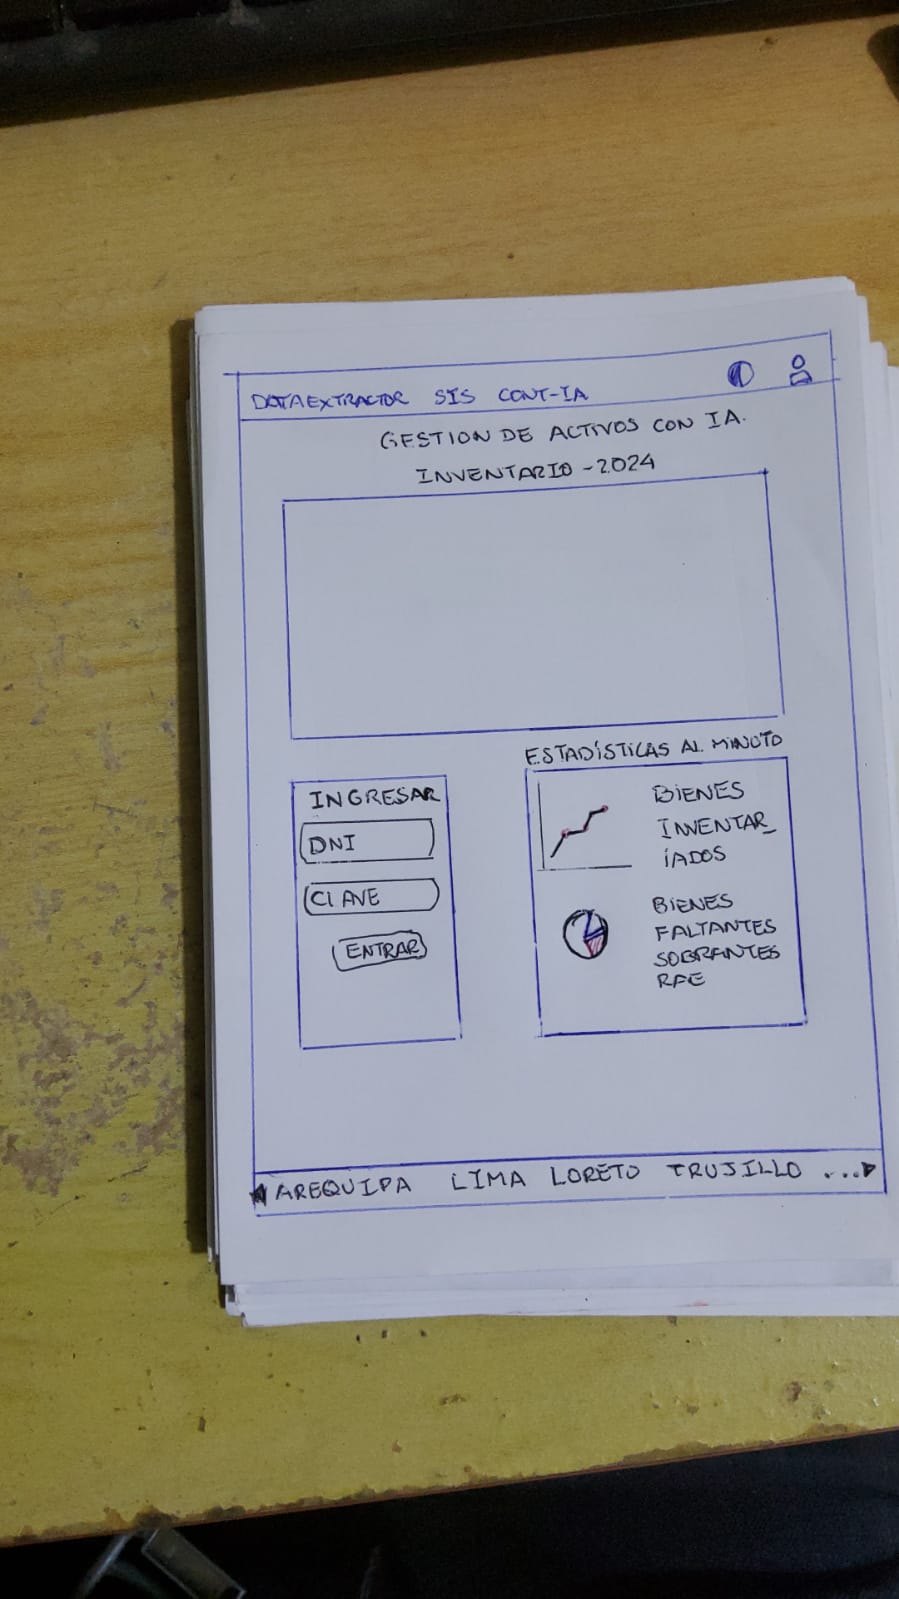 DATAEXTRACTOR SIS CONT-IA
GESTION DE ACTIVOS CON IA.
INVENTARIO - 2024
ESTADÍSTICAS AL MINUTO
INGRESAR
DNI
CLAVE
ENTRAR
BIENES
INVENTAR_
IADOS
BIENES
FALTANTES
SOBRANTES
RAE
AREQUIPA LIMA LORETO TRUJILLO ...